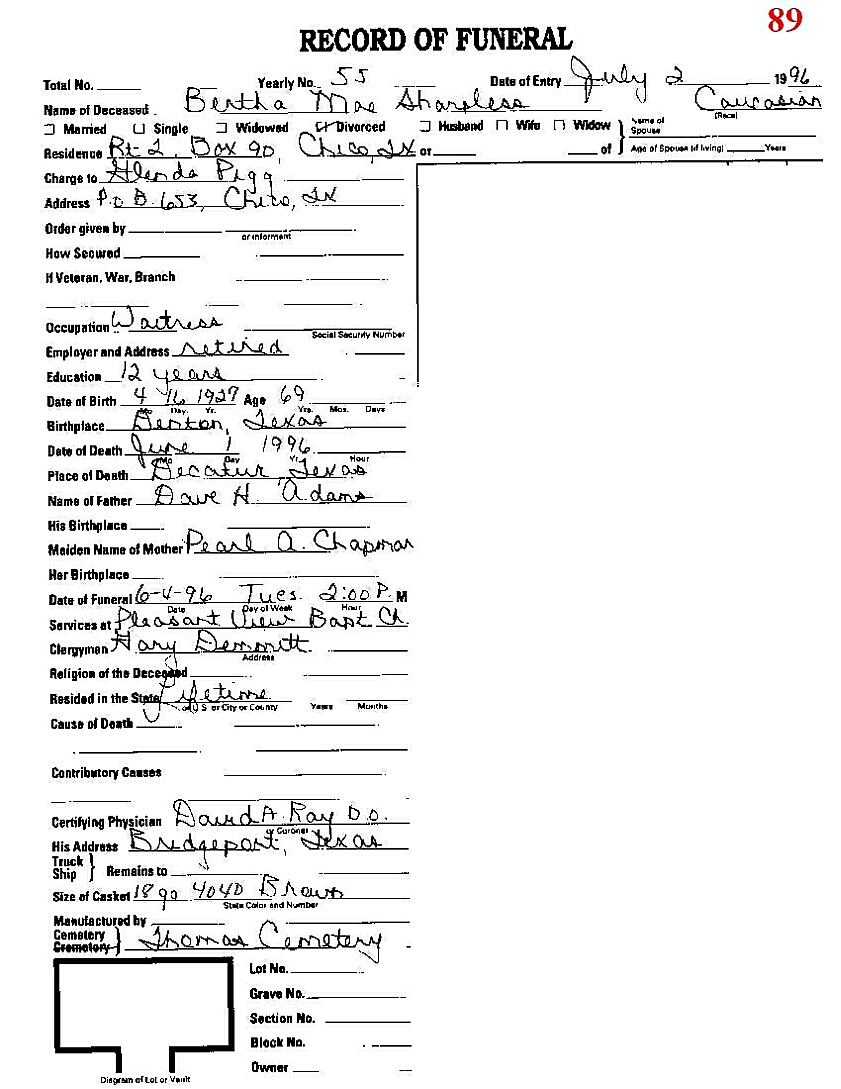 89
RECORD OF FUNERAL
Total No. Yearly No. 55 Date of Entry July 2 1996
Name of Deceased Bertha Mae Sharpless Caucasian
(Race)
Married Single Widowed Divorced Husband Wife Widow Name of Spouse
Residence Rt-2, Box 90, Chico, Tx or of Age of Spouse (if living) Years
Charge to Glenda Pigg
Address P.O B. 653, Chico, TX
Order given by
or Informant
How Secured
If Veteran, War, Branch
Occupation Waitress
Social Security Number
Employer and Address retired
Education 12 years
Date of Birth 4 16 1927 Age 69
Mo. Day. Yr. Yrs. Mos. Days
Birthplace Denton, Texas
Date of Death June 1 1996
Mo Day Yr. Hour
Place of Death Decatur, Texas
Name of Father Dave H. Adams
His Birthplace
Maiden Name of Mother Pearl A. Chapman
Her Birthplace
Date of Funeral 6-4-96 Tues. 2:00 P. M
Date Day of Week Hour
Services at Pleasant View Bapt Ch.
Clergyman Demmitt
Address
Religion of the Deceased
Resided in the State Lifetime
or U S or City or County Years Months
Cause of Death
Contributory Causes
Certifying Physician David A. Ray D.O.
or Coroner
His Address Bridgeport, Texas
Truck
Ship } Remains to
Size of Casket 18 ga 4040 Brown
State Color and Number
Manufactured by
Cemetery
Crematory } Thomas Cemetery
Lot No.
Grave No.
Section No.
Block No.
Owner
Diagram of Lot or Vault